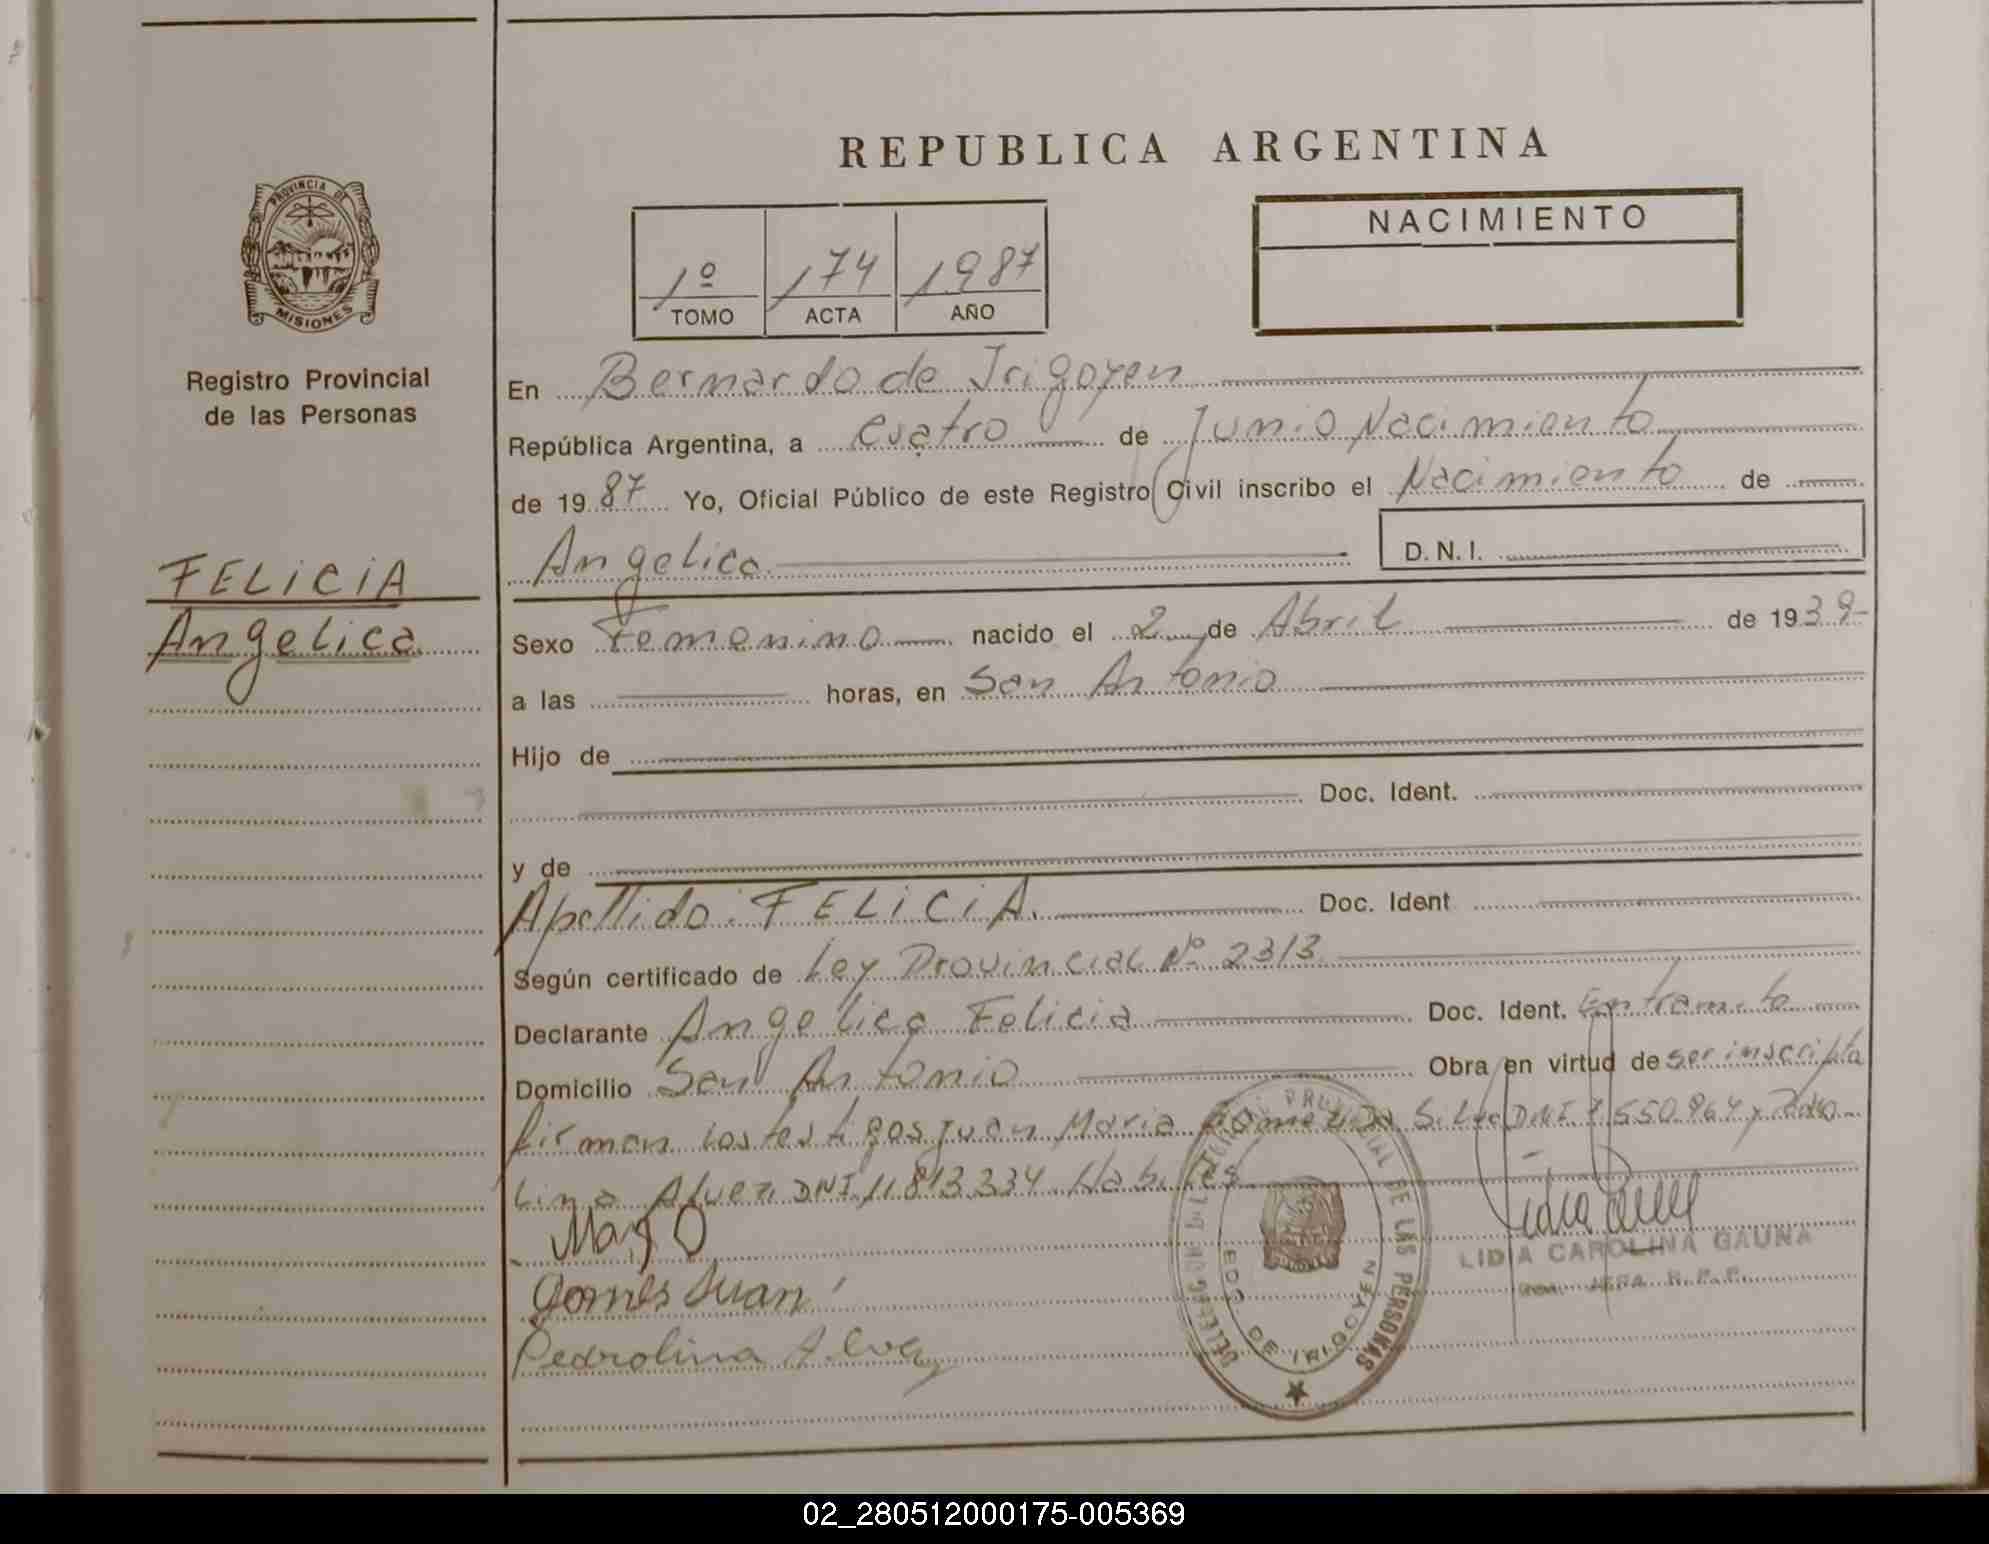 REPUBLICA ARGENTINA
PROVINCIA DE
MISIONES
Registro Provincial
de las Personas
FELICIA
Angelica
1º 174 1987
TOMO ACTA AÑO
NACIMIENTO
En Bernardo de Irigoyen
República Argentina, a cuatro de Junio Nacimiento
de 1987 Yo, Oficial Público de este Registro Civil inscribo el Nacimiento de
Angelica
D. N. I.
Sexo Femenino nacido el 2 de Abril de 1939
a las horas, en San Antonio
Hijo de
Doc. Ident.
y de
Apellido: FELICIA. Doc. Ident
Según certificado de Ley Provincial Nº 2313
Declarante Angelica Felicia Doc. Ident. En tramite
Domicilio San Antonio Obra en virtud de ser inscripta
firman los testigos Juan Maria Gomez Da Silva DNI 7.550.864 y Pedro
lina Alvez DNI 11.813.334 Habiles
Gomes Juan
Pedrolina Alvez
DELEGACION DEL REGISTRO PROVINCIAL DE LAS PERSONAS
BDO. DE IRIGOYEN
LIDIA CAROLINA GAUNA
JEFA R.P.P.
02_280512000175-005369